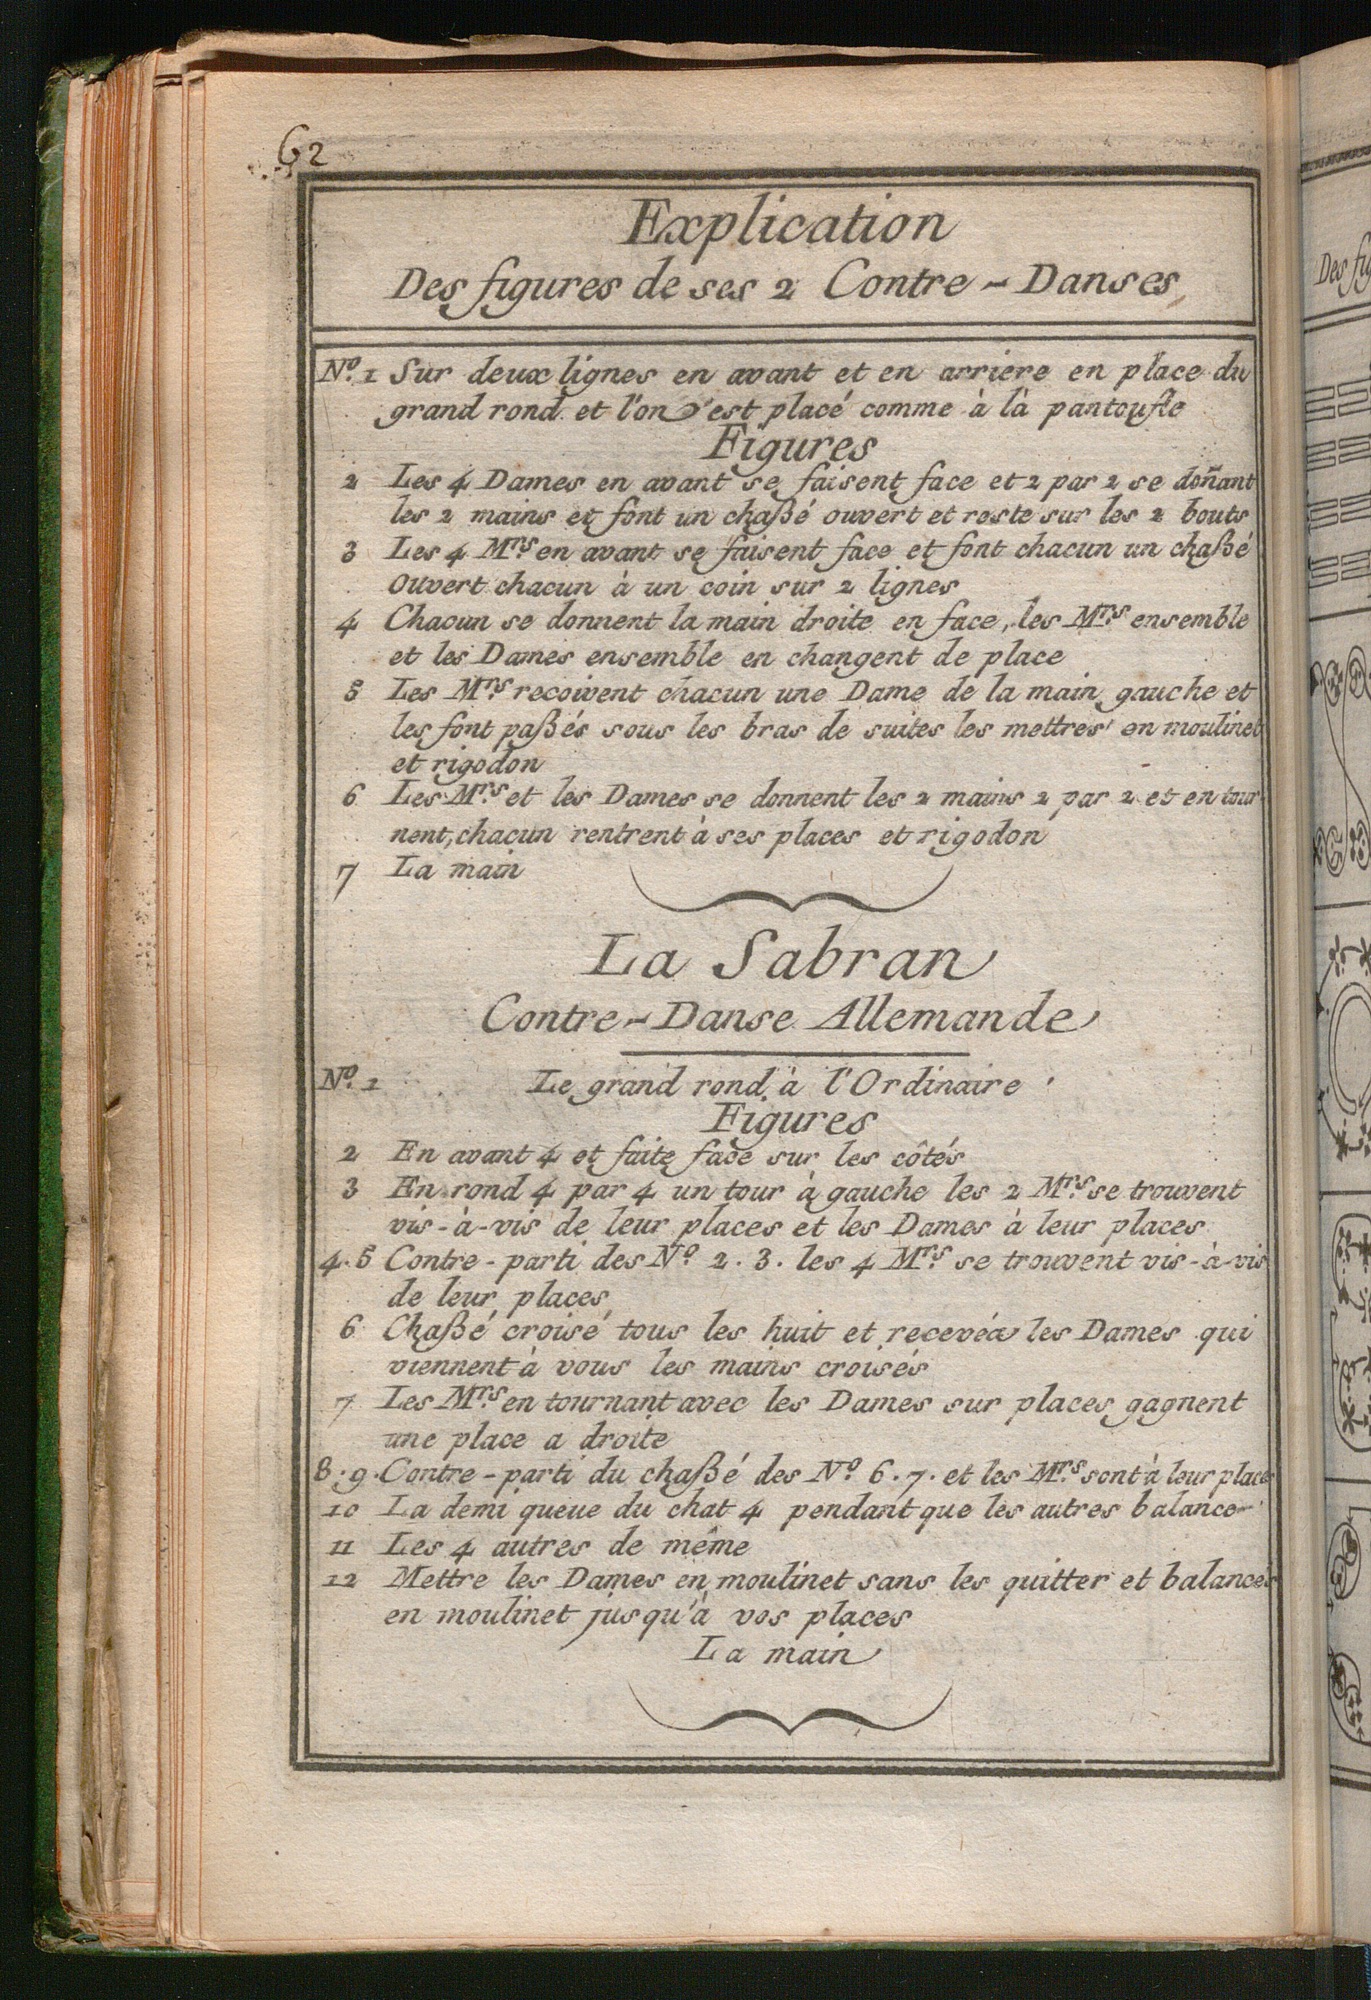 62
Explication
Des figures de ses 2 Contre-Danses
Nº. 1 Sur deux lignes en avant et en arriere en place du
grand rond et l'on s'est placé comme à là pantoufle
Figures
2 Les 4 Dames en avant se faisent face et 2 par 2 se doñant
les 2 mains et font un chaßé ouvert et reste sur les 2 bouts
3 Les 4 Mrs. en avant se faisent face et font chacun un chaßé
Ouvert chacun à un coin sur 2 lignes
4 Chacun se donnent la main droite en face, les Mrs. ensemble
et les Dames ensemble en changent de place
5 Les Mrs. recoivent chacun une Dame de la main gauche et
les font paßés sous les bras de suites les mettres en moulinet
et rigodon
6 Les Mrs. et les Dames se donnent les 2 mains 2 par 2 et en tour-
nent, chacun rentrent à ses places et rigodon
7 La main
La Sabran
Contre-Danse Allemande
Nº. 1 Le grand rond à l'Ordinaire
Figures
2 En avant 4 et faite face sur les côtés
3 En rond 4 par 4 un tour à gauche les 2 Mrs. se trouvent
vis-à-vis de leur places et les Dames à leur places
4.5 Contre-parti des Nº. 2.3. les 4 Mrs. se trouvent vis-à-vis
de leur places
6 Chaßé croisé tous les huit et recevéz les Dames qui
viennent à vous les mains croisés
7 Les Mrs. en tournant avec les Dames sur places gagnent
une place a droite
8.9. Contre-parti du chaßé des Nº. 6.7. et les Mrs. sont à leur places
10 La demi queue du chat 4 pendant que les autres balance
11 Les 4 autres de même
12 Mettre les Dames en moulinet sans les quitter et balancés
en moulinet jusqu'à vos places
La main
Des fig